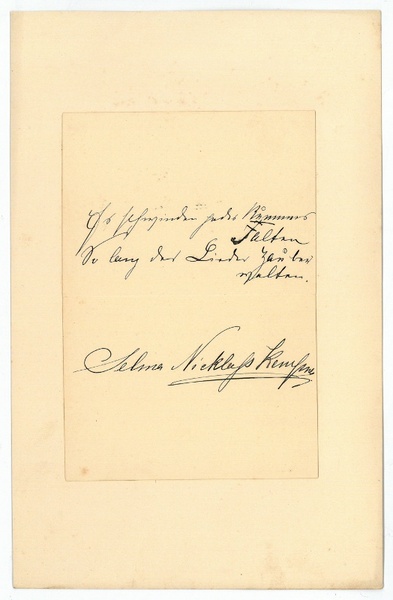 Es schwinden jedes Kummers
Falten
So lang des Liedes Zauber
walten.
Selma Nicklass Kempner